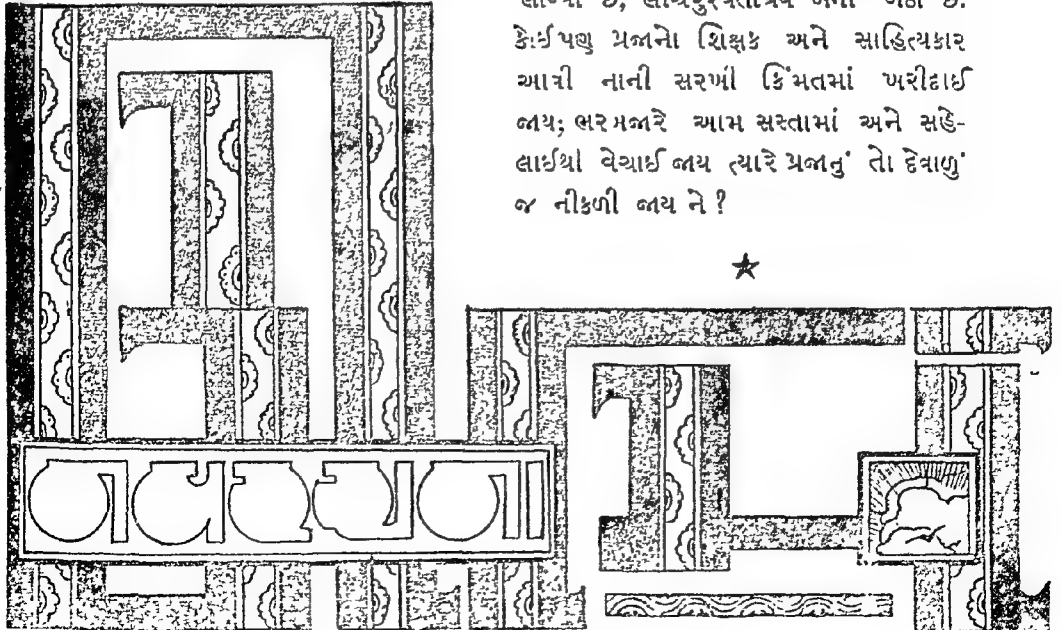 છે, છે.
કોઈપણ પ્રજાનો શિક્ષક અને સાહિત્યકાર
આવી નાની સરખી કિંમતમાં ખરીદાઈ
જાય; ભરબજારે આમ સસ્તામાં અને સહે-
લાઈથી વેચાઈ જાય ત્યારે પ્રજાનું તો દેવાળું
જ નીકળી જાય ને ?
નવરચના